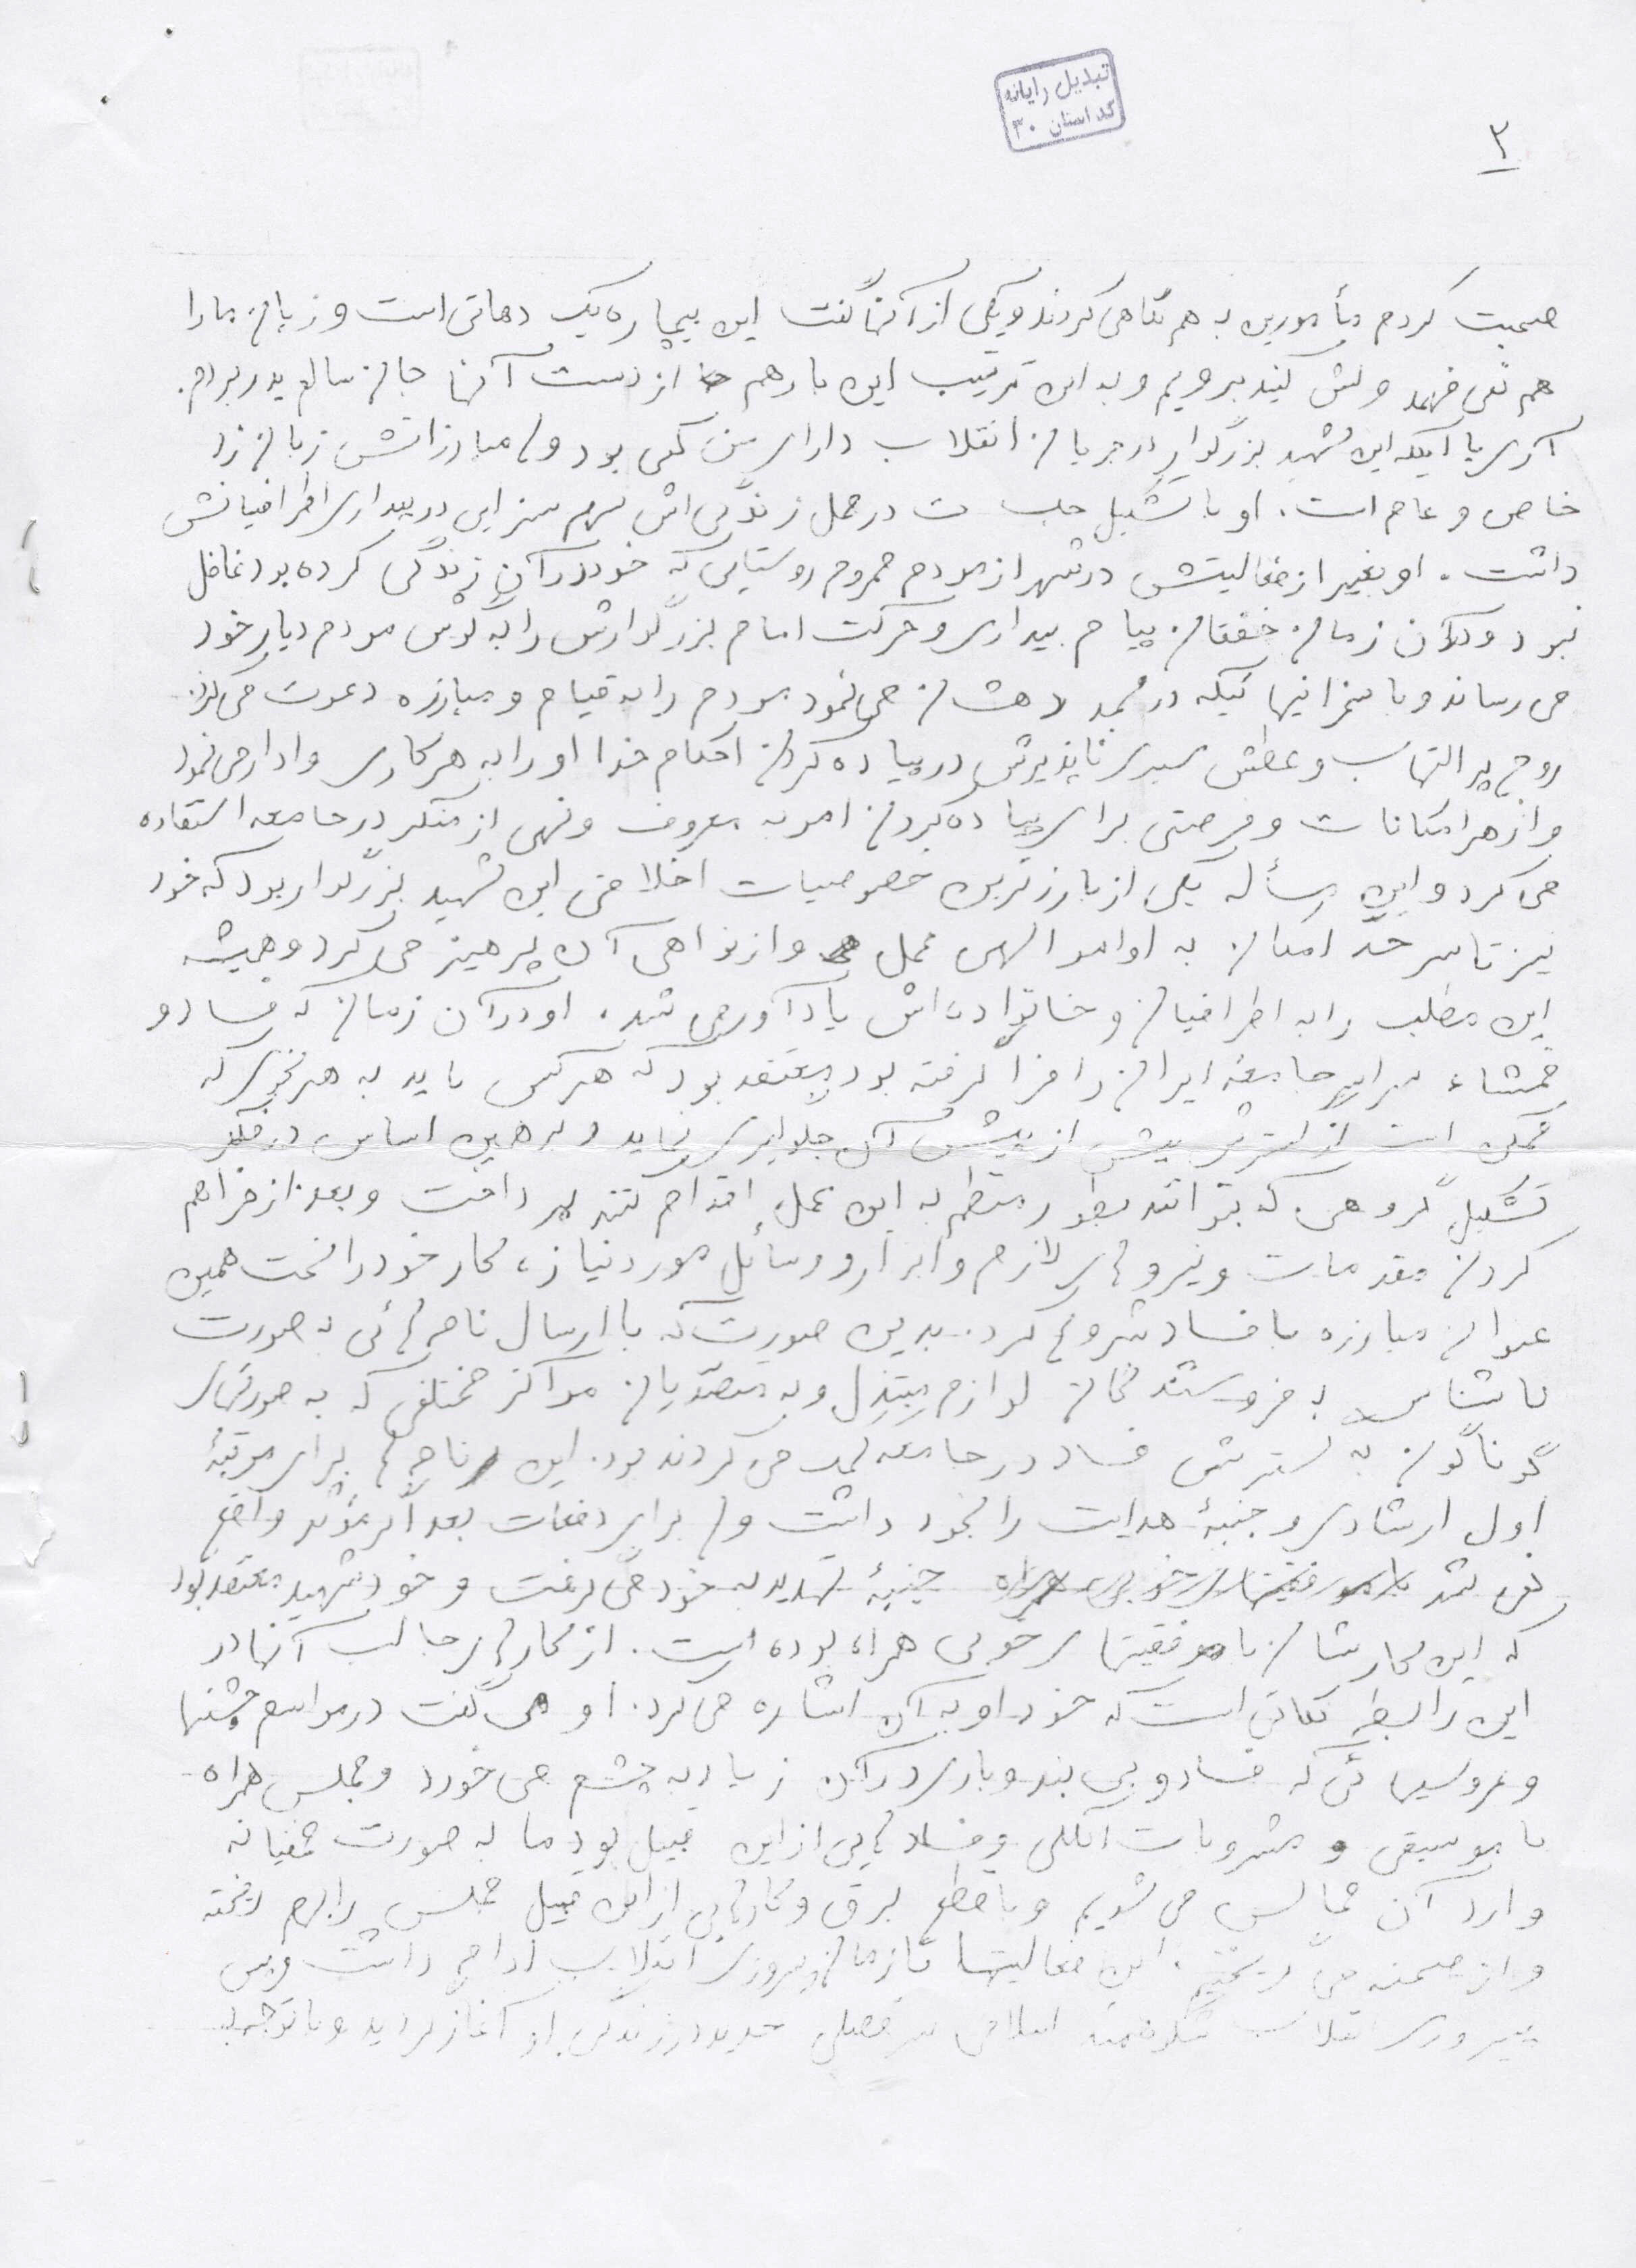 تبدیل رایانه
کد استان ۳۰
۲
صحبت کردم مأمورین به هم نگاهی کردند و یکی از آنها گفت این بیچاره یک دهاتی است و زبان ما را
هم نمی فهمد ولش کنید برویم و به این ترتیب این بار هم از دست آنها جان سالم بدر بردم.
آری با اینکه این شهید بزرگوار در جریان انقلاب دارای سن کمی بود ولی مبارزاتش زبان زد
خاص و عام است. او با تشکیل جلسات در محل زندگی اش سهم سزایی در بیداری اطرافیانش
داشت. او بغیر از فعالیتش در شهر از مردم محروم روستایی که خود در آن زندگی کرده بود غافل
نبود و در آن زمان خفقان پیام بیداری و حرکت امام بزرگوارش را به گوش مردم دیار خود
می رساند و با سخنرانیها ئیکه در مسجد دهشان می نمود مردم را به قیام و مبارزه دعوت می کرد.
روح پر التهاب و عطش سیری ناپذیرش در پیاده کردن احکام خدا او را به هر کاری وادار می نمود
و از هر امکانات و فرصتی برای پیاده کردن امر به معروف و نهی از منکر در جامعه استفاده
می کرد و این مسأله یکی از بارزترین خصوصیات اخلاقی این شهید بزرگوار بود که خود
نیز تا سر حدّ امکان به اوامر الهی عمل و از نواهی آن پرهیز می کرد و همیشه
این مطلب را به اطرافیان و خانواده اش یادآور می شد. او در آن زمان که فساد و
فحشاء سراسر جامعهٔ ایران را فرا گرفته بود معتقد بود که هر کس باید به هر نحوی که
ممکن است از گسترش بیش از پیش آن جلوگیری نماید و بر همین اساس در فکر
تشکیل گروهی که بتوانند بطور منظم به این عمل اقدام کنند پرداخت و بعد از فراهم
کردن مقدمات و نیروهای لازم و ابزار و وسائل مورد نیاز، کار خود را تحت همین
عنوان مبارزه با فساد شروع کرد. بدین صورت که با ارسال نامه هائی به صورت
ناشناس به فروشندگان لوازم مبتذل و به متصدّیان مراکز مختلفی که به صورتهای
گوناگون به گسترش فساد در جامعه کمک می کردند بود. این نامه ها برای مرتبهٔ
اول ارشادی و جنبهٔ هدایت را بخود داشت ولی برای دفعات بعد اگر مؤثر واقع
نمی شد با موفقیتهای خوبی همراه جنبهٔ تهدید به خود می گرفت و خود شهید معتقد بود
که این کارشان با موفقیتهای خوبی همراه بوده است. از کارهای جالب آنها در
این رابطه نکاتی است که خود او به آن اشاره می کرد. او می گفت در مراسم جشنها
و عروسیهائی که فساد و بی بند و باری در آن زیاد به چشم می خورد و مجلس همراه
با موسیقی و مشروبات الکلی و فسادهایی از این قبیل بود ما به صورت مخفیانه
وارد آن مجالس می شدیم و با قطع برق و کارهایی از این قبیل مجلس را بهم ریخته
و از صحنه می گریختیم. این فعالیتها تا زمان پیروزی انقلاب ادامه داشت و پس
پیروزی انقلاب شکوهمند اسلامی سر فصلی جدید در زندگی او آغاز گردید و با توجه به